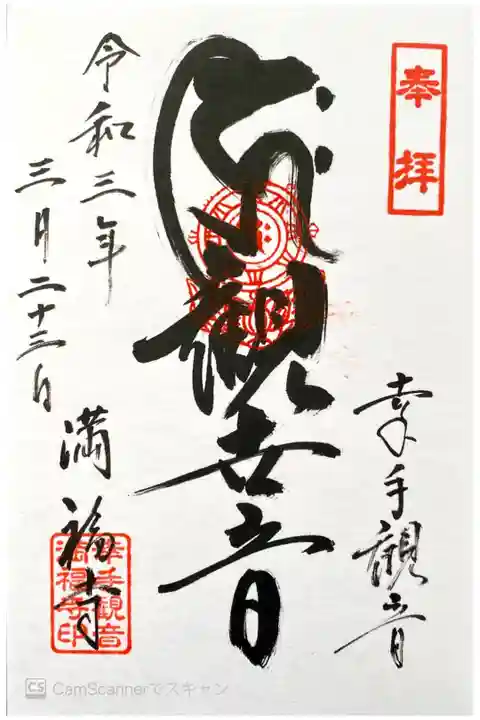 奉拝
幸手観音
観世音
令和三年
三月二十三日
満福寺
幸手観音
満福寺印
CS CamScannerでスキャン